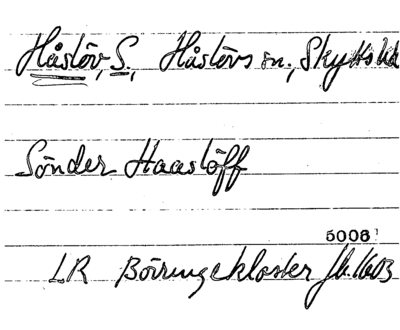 Håslöv, S., Håslövs sn., Skytts hd
Sönder Haaslöff
5006
LR Börringekloster Jb 1603